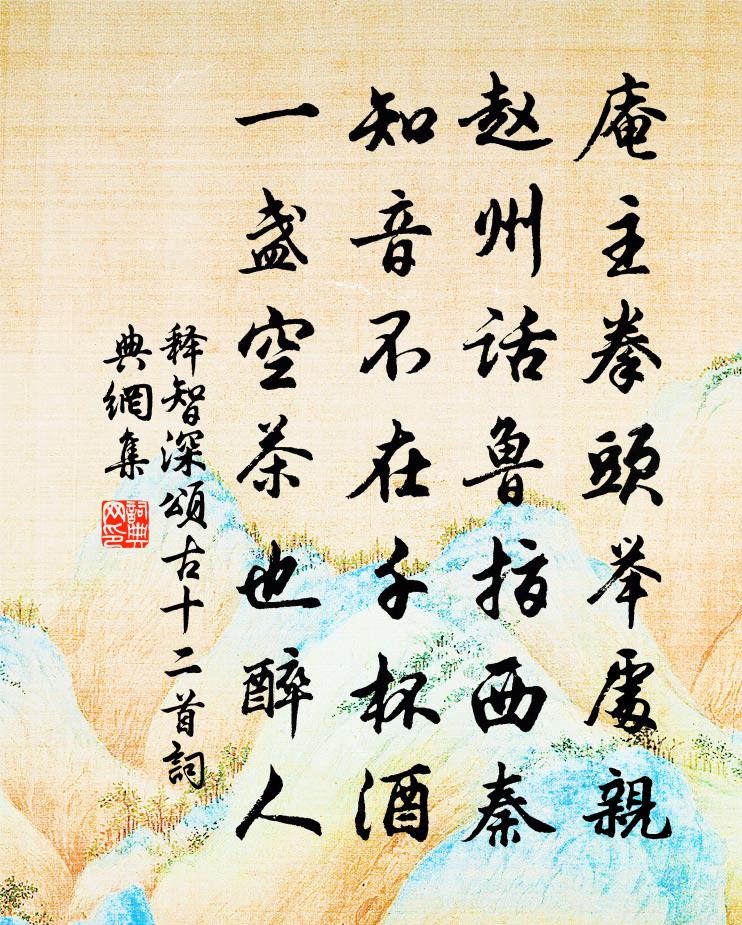 庵主拳頭举處親
赵州话魯指西秦
知音不在千杯酒
一盏空茶也醉人
释智深頌古十二首詞
典網集
詞典
网印